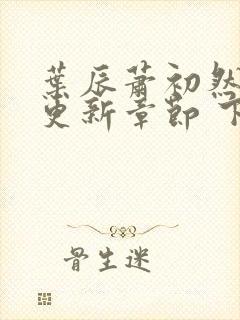 葉辰蕭初然
更新章節 下
骨生迷